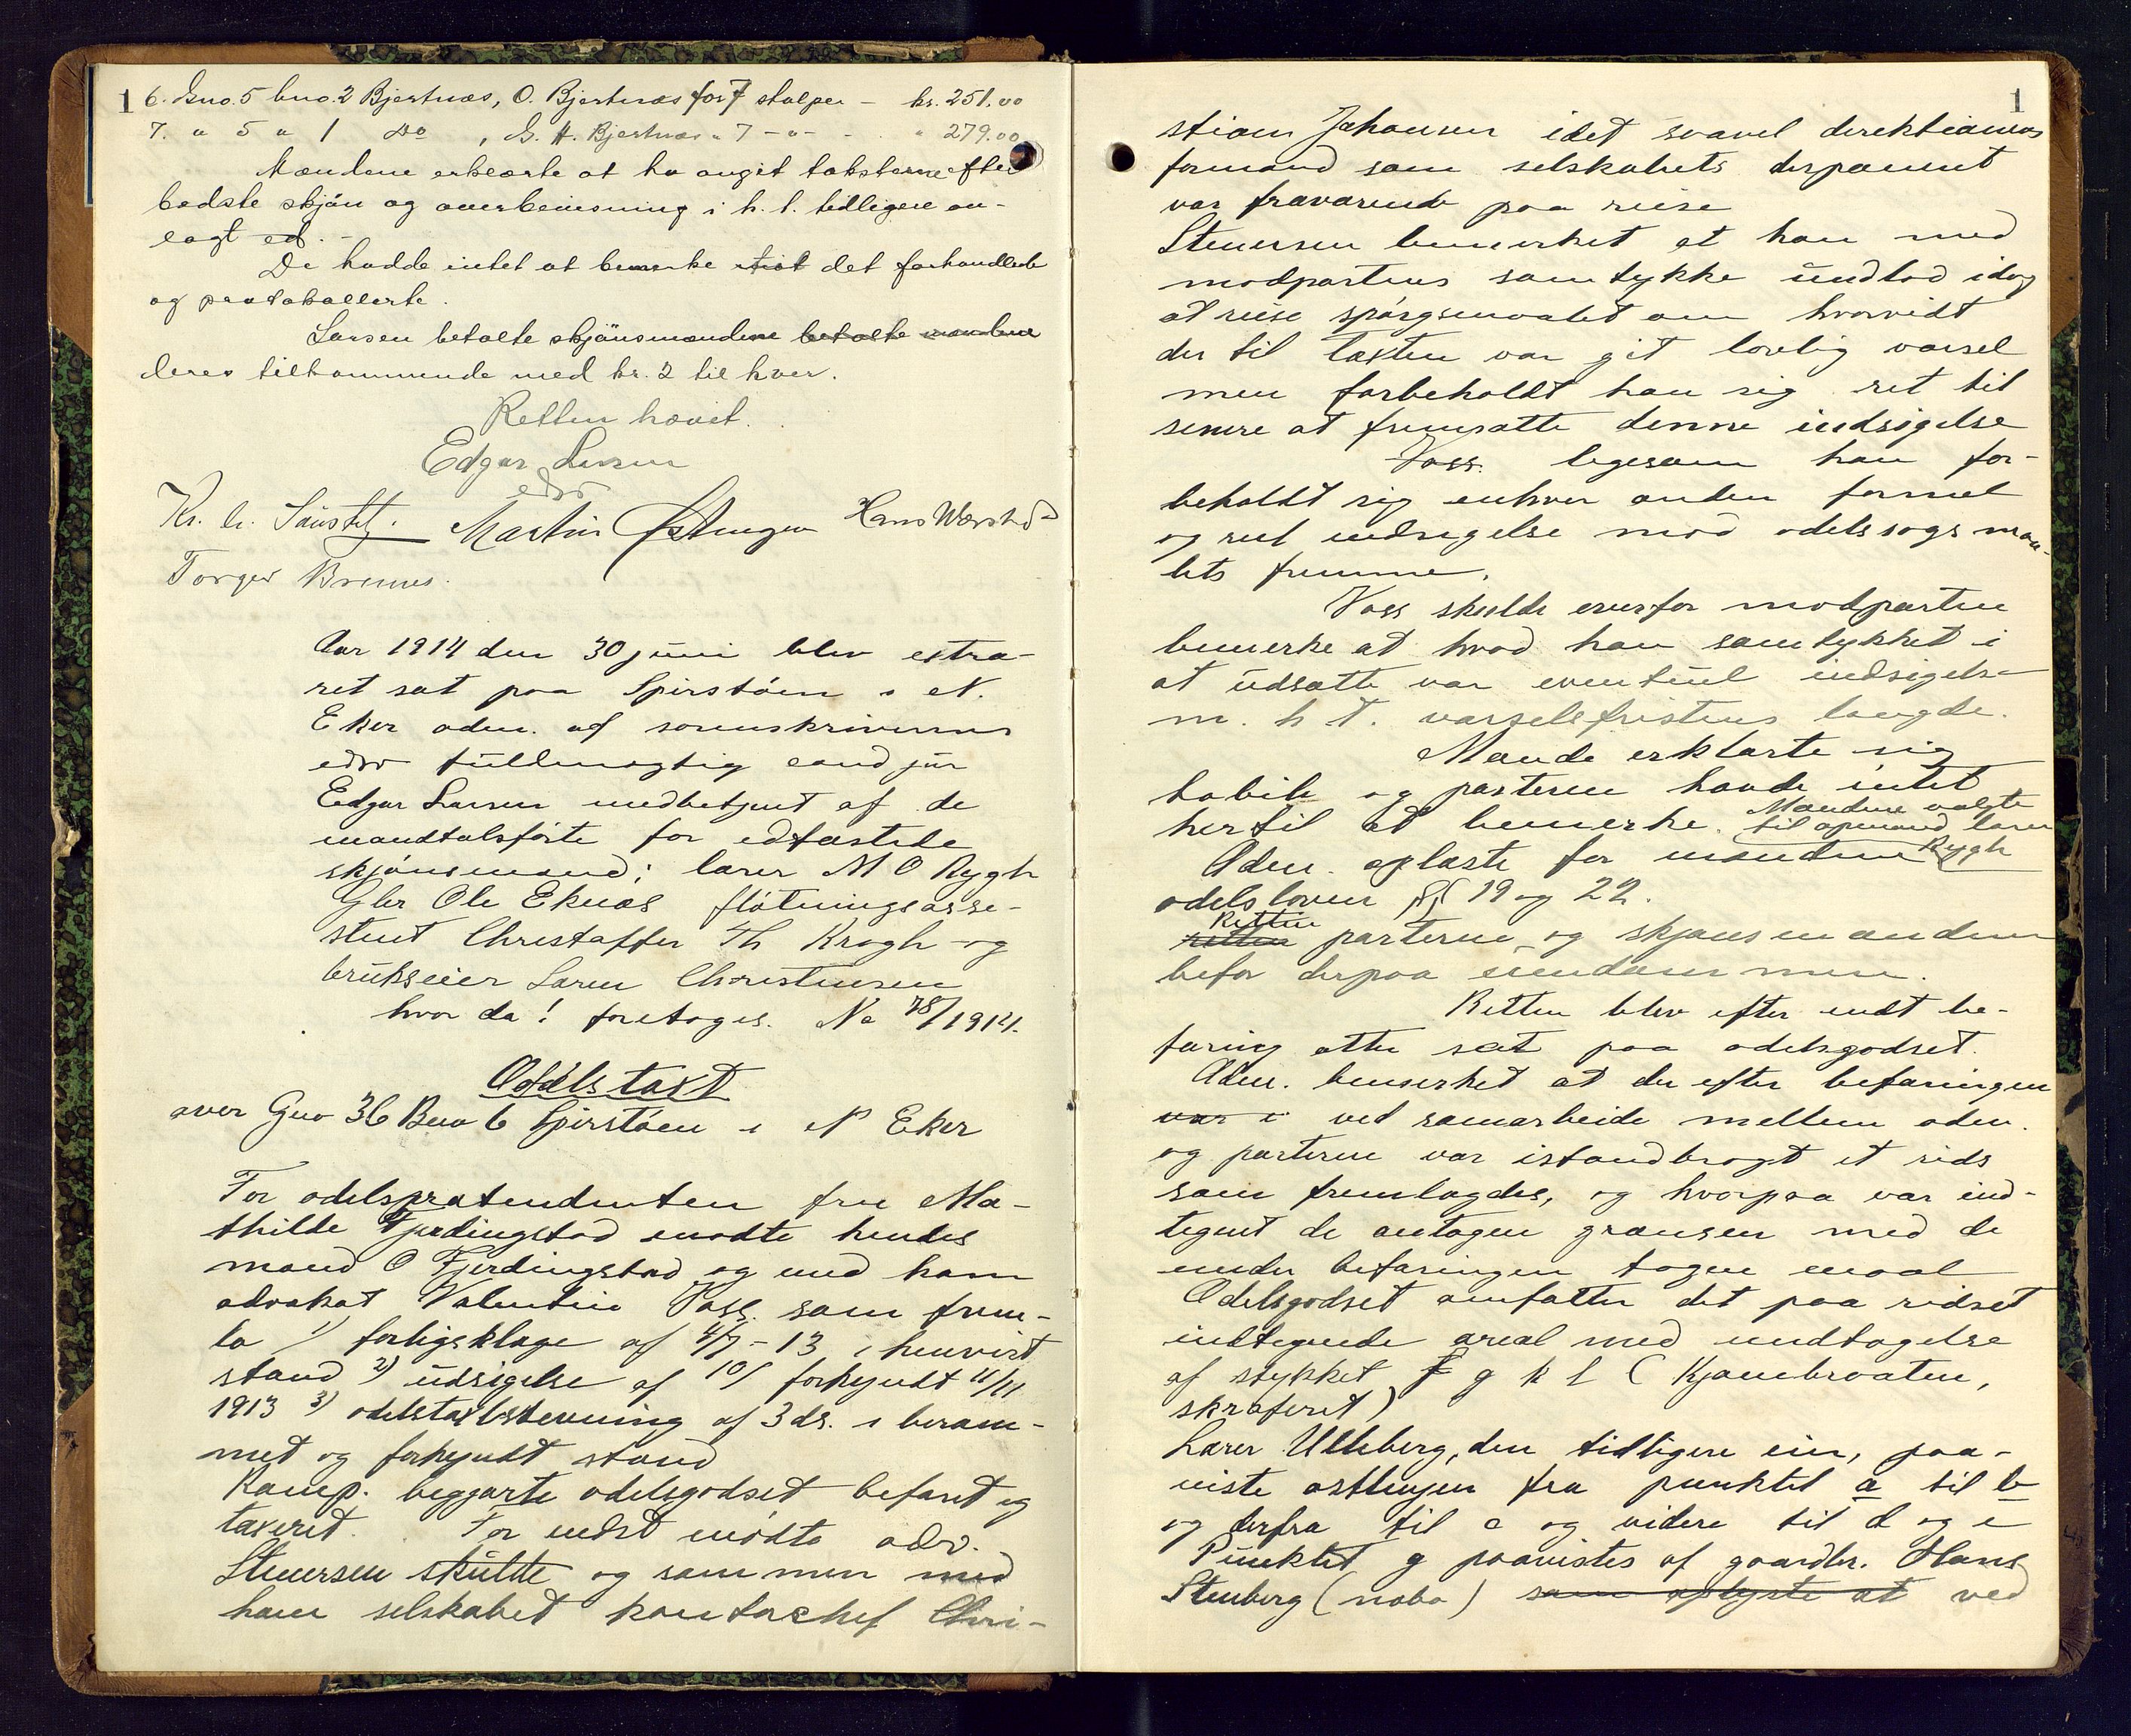 1
6. Gno. 5 bno. 2 Bjertnæs, O. Bjertnæs for 7 stolper - kr. 251.00
7. " 5 " 1 Do , G. H. Bjertnæs " 7 - " - " 279.00
Mændene erklærte at ha avgit taksterne efter
bedste skjön og overbevisning i h. t. tidligere av-
lagt ed. -
De hadde intet at bemerke til det forhandlede
og protokollerte.
Larsen betalte skjönsmændene betalte mændene
deres tilkommende med kr. 2 til hver.
Retten hævet.
Edgar Larsen
edsv
Kr. Martin Østengen Hans Wærsted
Torger Bremes.
Aar 1914 den 30 juni blev extra-
ret sat paa Spirstöen i N.
Eker adm. af sorenskriverens
edsv fuldmægtig cand jur
Edgar Larsen medbetjent af de
mandtalsförte for edfæstede
skjönsmænd; lærer M O Rygh
Gbr Ole Eknæs flötningsassi-
stent Christoffer Th Krogh og
brukseier Søren Christensen
hvor da! foretoges. No 78/1914.
Odelstaxt
over Gno 36 Bno 6 Spirstöen i N Eker
For odelsprætendenten fru Ma-
thilde Fjerdingstad mødte hendes
mand O Fjerdingstad og med ham
advokat Valentin Voss. som frem-
la 1) forligsklage af 4/7 - 13 i henvist
stand 2) udsigelse af 10/ forkyndt 11/11
1913 3) odelstakststevning af 3 ds. i beram-
met og forkyndt stand
Komp. begjærte odelsgodset befaret og
taxeret. For indst mödte adv.
Stenersen skulde og sammen med
ham selskabet kontorchef Chri-
1
stian Johansen idet saavel direktionens
formand som selskabets disponent
var fraværende paa reise
Stenersen bemerket at han med
modpartens samtykke undlod idag
at reise spörgsmaalet om hvorvidt
der til taxten var git lovlig varsel
men forbeholdt han sig ret til
senere at fremsætte denne indsigelse
Voss. ligesom han for-
beholdt sig enhver anden formel
og reel indsigelse mod odelssøgsmaa-
lets fremme.
Voss skulde overfor modparten
bemerke at hvad han samtykket i
at udsætte var eventuel indsigelse
m. h t. varselsfristens længde.
Mænde erklærte sig
habile og parterne havde intet
hertil at bemerke. Mændene valgte
til opmand lærer
Rygh
Adm. oplæste for mændene
odelsloven §§ 19 og 22.
Retten
retten parterne og skjønsmændene
befor derpaa eiendommen.
Retten blev efter endt be-
faring atter sat paa odelsgodset.
Adm. bemerket at der efter befaringen
var i ved samarbeide mellem adm.
og parterne var istandbragt et rids
som fremlagdes, og hvorpaa var ind-
tegnet de antagne grænser med de
under befaringen tagne maal
Odelsgodset omfatter det paa ridset
indtegnede areal med undtagelse
af stykket f g k l (Kjønnbraaten,
skraferet)
Lærer Ulleberg, den tidligere eier, paa-
viste østlinjen fra punktet a til b
og derfra til c og videre til d og e
Punktet g paavistes af gaardbr. Hans
Stenberg (nabo) som oplyste at ved